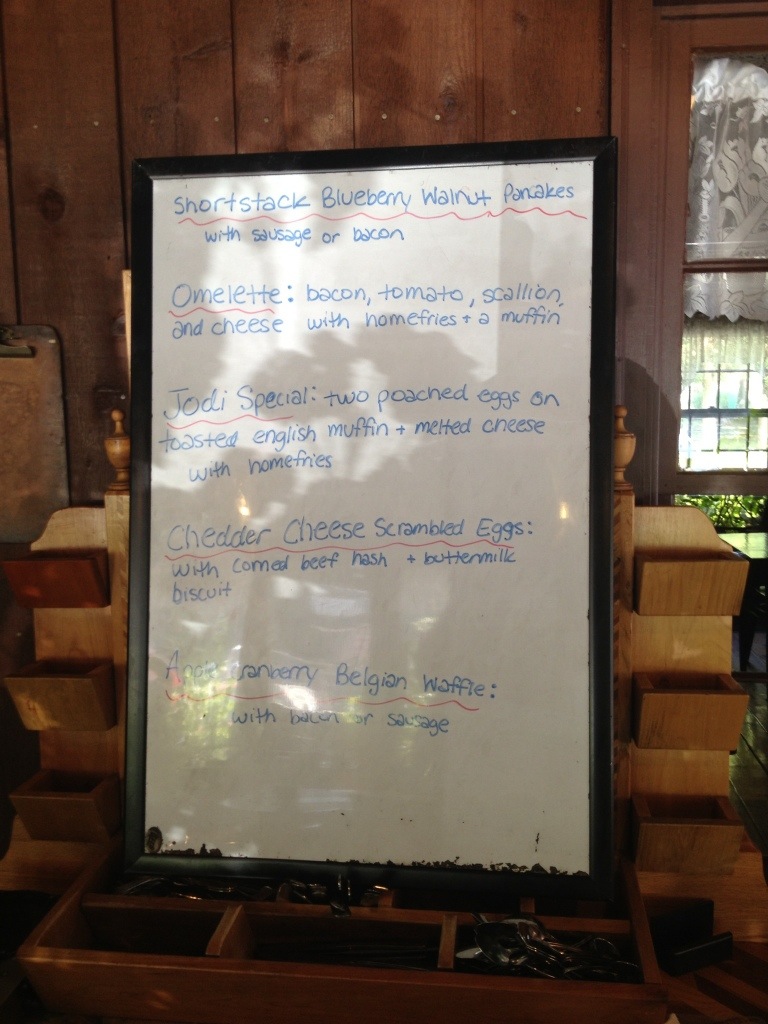 Shortstack Blueberry Walnut Pancakes
with sausage or bacon
Omelette: bacon, tomato, scallion,
and cheese with homefries + a muffin
Jodi Special: two poached eggs on
toasted english muffin + melted cheese
with homefries
Chedder Cheese Scrambled Eggs:
with corned beef hash + buttermilk
biscuit
Apple Cranberry Belgian Waffle:
with bacon or sausage